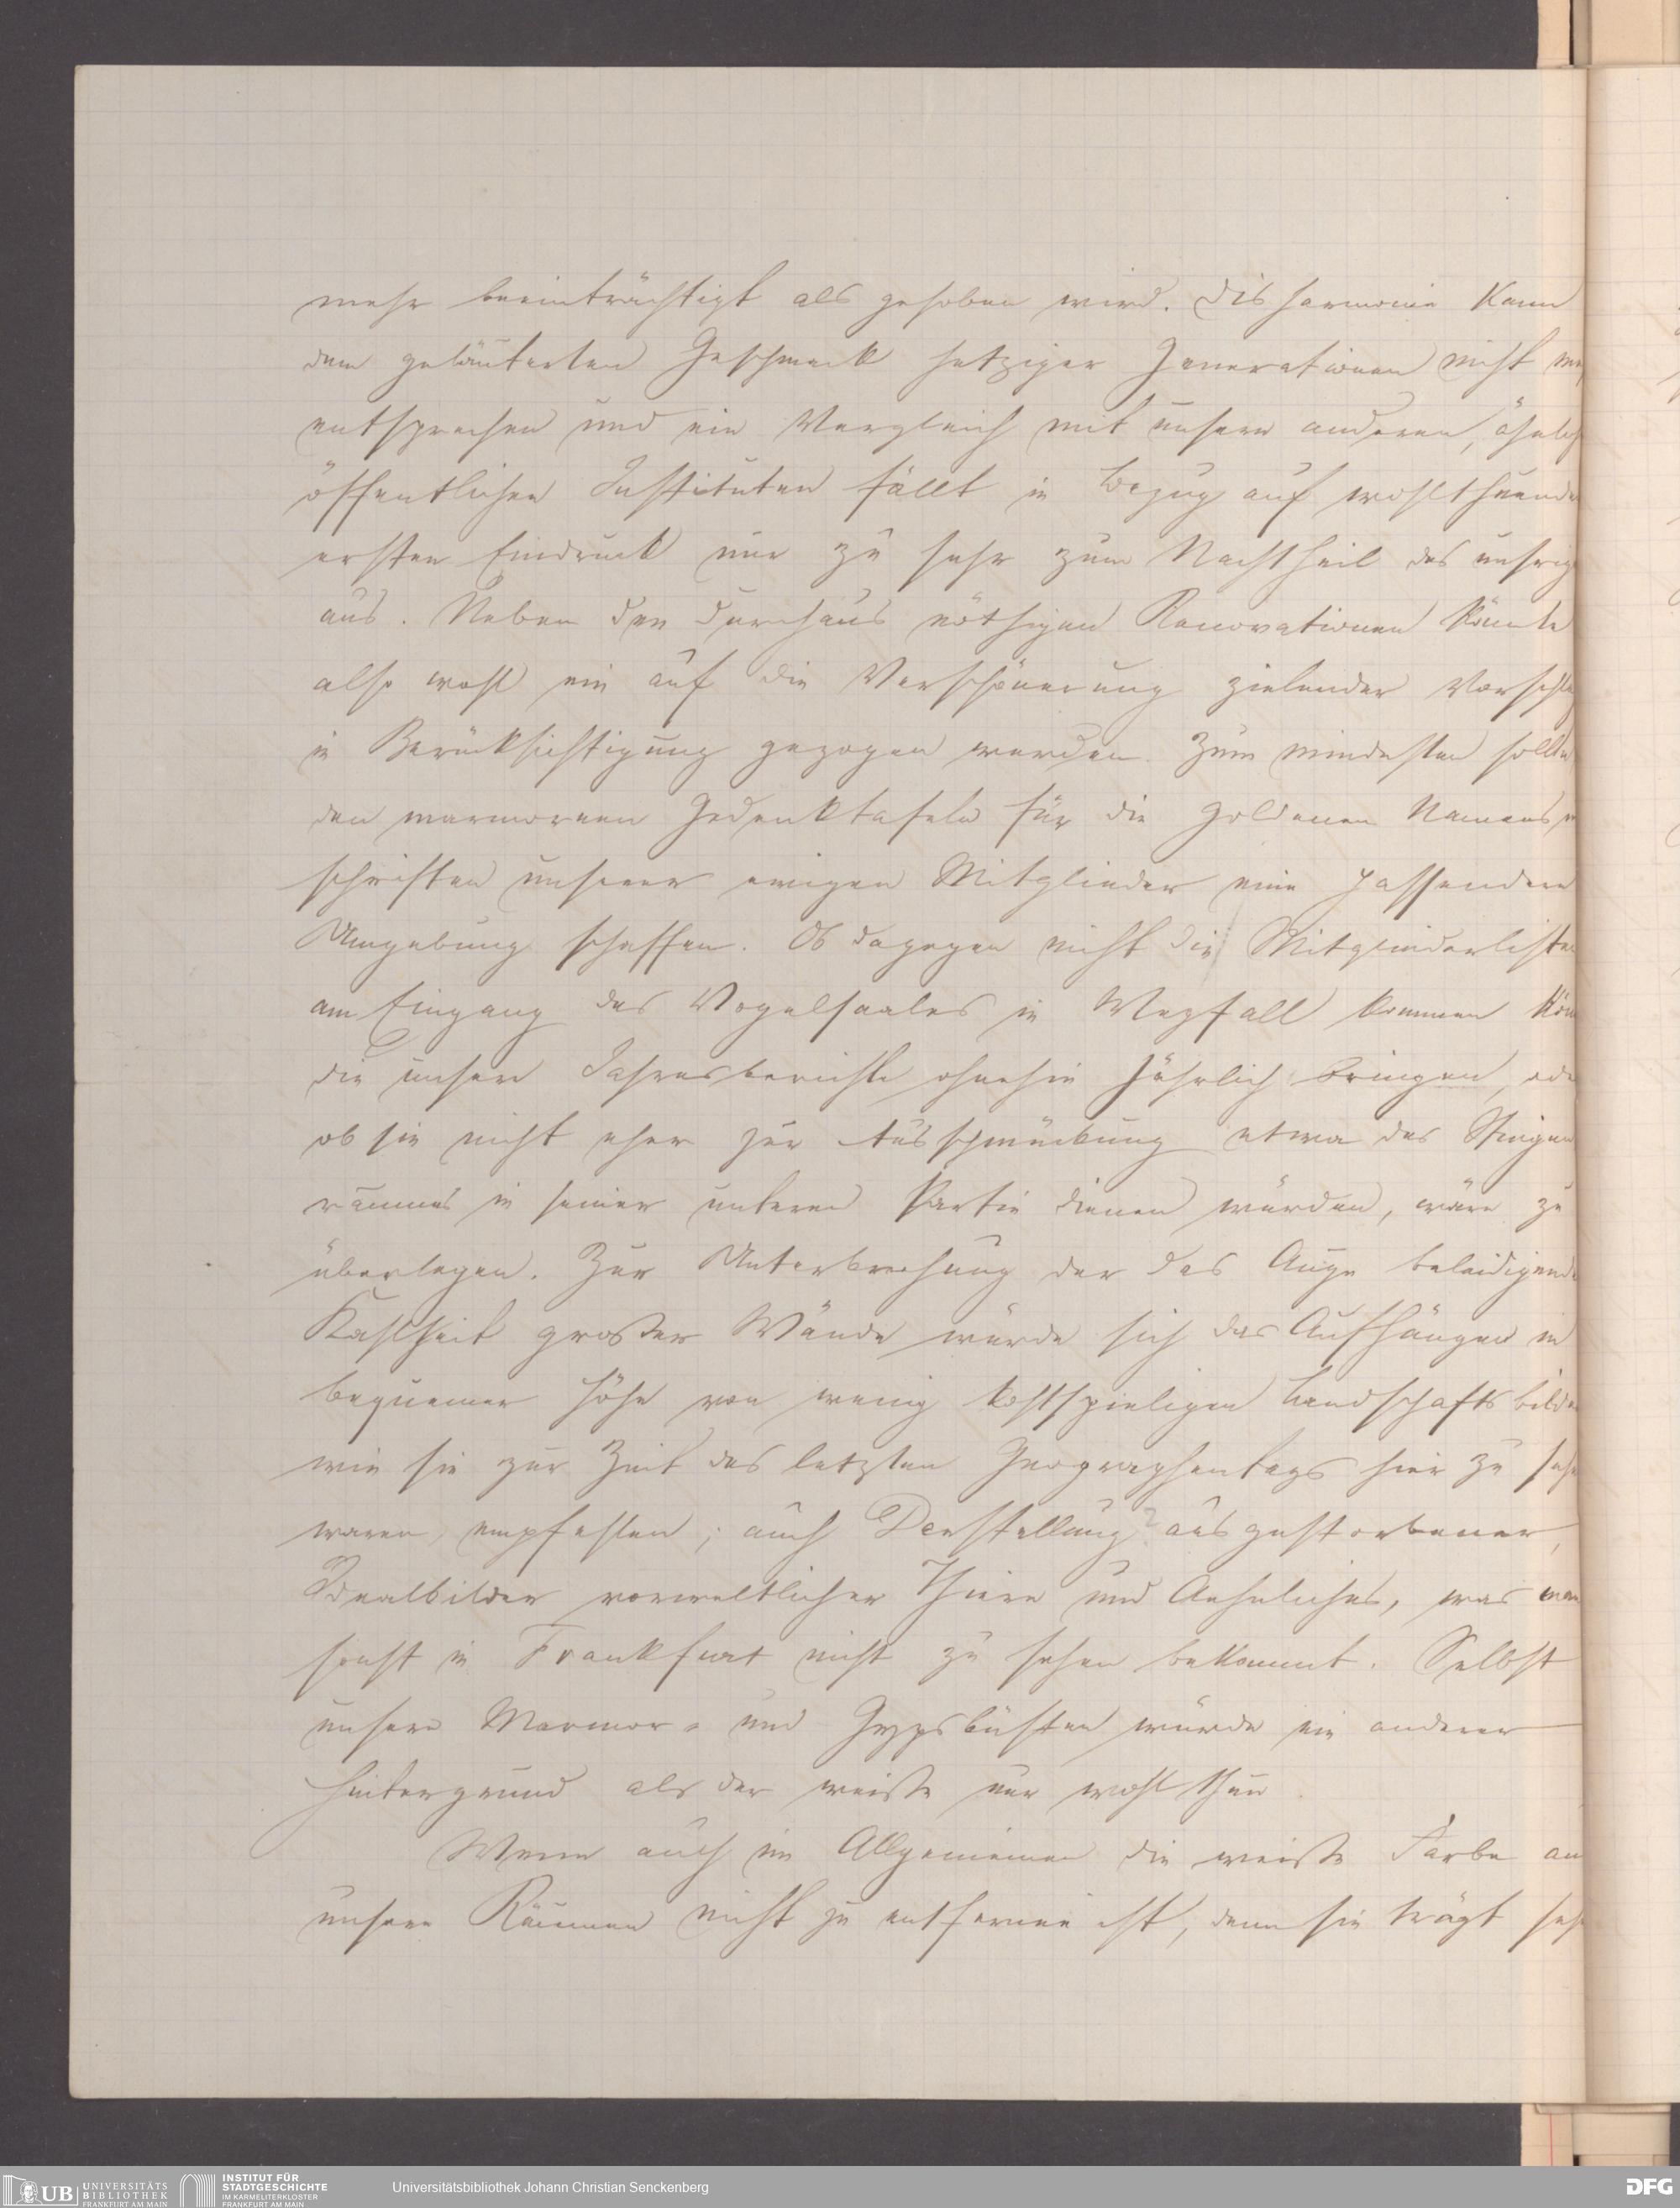 mehr beeinträchtigt als gehoben wird. Disharmonie kann
dem geläuterten Geschmack jetziger Generationen nicht
entsprechen und ein Vergleich mit unseren anderen,
öffentlichen Instituten fällt in Bezug auf wohlthuenden
ersten Eindruck nur zu sehr zum Nachtheil des unsrigen
aus. Neben den durchaus nöthigen Renovationen könnte
also wohl ein auf die Verschönerung zielender Vorschlag
in Berücksichtigung gezogen werden. Zum mindesten sollte
den marmornen Gedenktafeln für die goldenen Namens
schriften unserer ewigen Mitglieder eine passendere
Umgebung schaffen. Ob dagegen nicht die Mitgliederlisten
am Eingang des Vogelsaales in Wegfall kommen
die unsere Jahresberichte ohnehin jährlich bringen, oder
ob sie nicht eher zur Ausschmückung etwa des Stiegen
raumes in seiner unteren Partie dienen würden, wäre zu
überlegen. Zur Unterbrechung der das Auge beleidigenden
Kahlheit großer Wände würde sich das Aufhängen in
bequemer Höhe von wenig kostspieligen Landschaftsbildern
wie sie zur Zeit des letzten Geographentags hier zu sehen
waren, empfehlen; auch Darstellung ausgestorbener,
Idealbilder vorweltlicher Thiere und Aehnliches, was man
sonst in Frankfurt nicht zu sehen bekommt. Selbst
unseren Marmor- und Gypsbüsten würde ein anderer
Hintergrund als der weiße nur wohl thun.
Wenn auch im Allgemeinen die weiße Farbe aus
unseren Räumen nicht zu entfernen ist, denn sie trägt sehr
UB UNIVERSITÄTS BIBLIOTHEK FRANKFURT AM MAIN
INSTITUT FÜR STADTGESCHICHTE IM KARMELITERKLOSTER FRANKFURT AM MAIN
Universitätsbibliothek Johann Christian Senckenberg
DFG